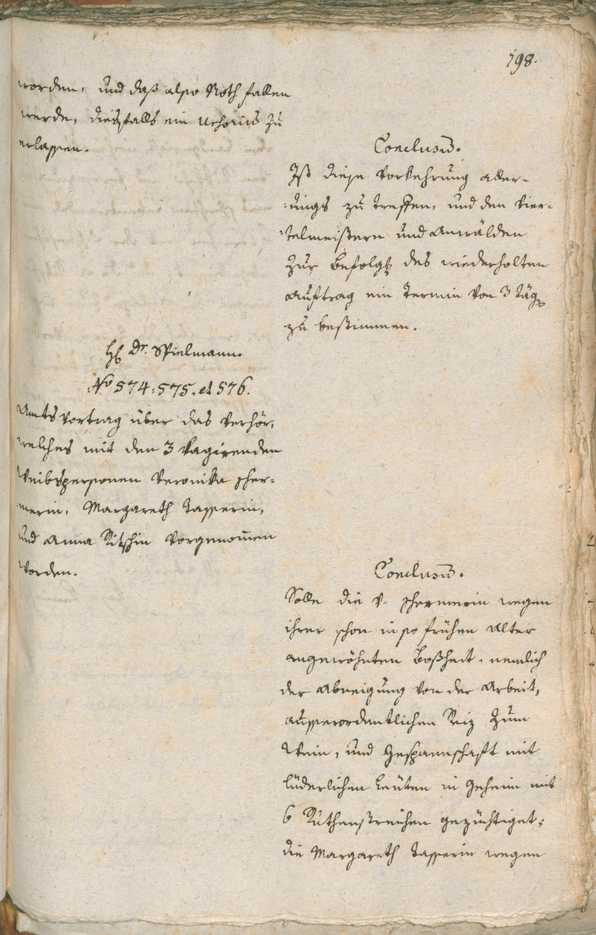 198.
worden, und daß also Noth fallen
werde, diesfalls ein
erlassen.
Conclusū.
Ist diese Vorkehrung aller-
dings zu treffen, und den Vier-
telmeistern und Anwälden
zur Befolgg des wiederholten
Auftrag ein Termin von 3 Täg
zu bestimmen.
H Dr. Spielmann.
No 574: 575. et 576.
Amtsvortrag über das Verhör,
welches mit den 3 Vagirenden
Weibspersonen Veronika Scher-
merin, Margareth Tasserin,
und Anna Ritschin vorgenom̅en
worden.
Conclusū.
Solle die V. Schermerin wegen
ihrer schon in so frühen Alter
angewöhnten Boßheit, nemlich
der Abneigung von der Arbeit,
ausserordentlichen Reiz zum
Wein, und Gespannschaft mit
lüderlichen Leuten in Geheim mit
6 Ruthenstreichen gezüchtiget;
die Margareth Tasserin wegen